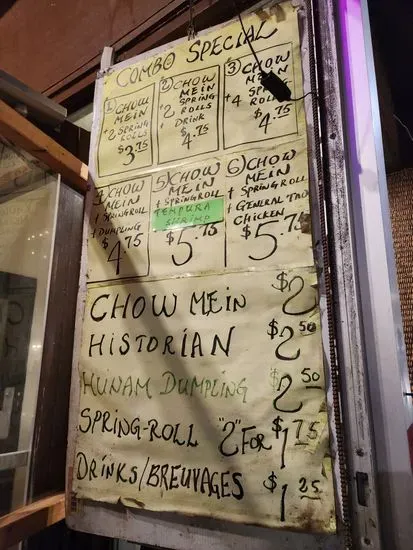 COMBO SPECIAL
① CHOW
MEIN
+2 SPRING
ROLLS
$3.75
② CHOW
MEIN
+2 SPRING
ROLLS
+ DRINK
$4.75
③ CHOW
MEIN
+4 SPRING
ROLLS
$4.75
CHOW
MEIN
+ SPRINGROLL
+ DUMPLING
$4.75
5) CHOW
MEIN
+ SPRINGROLL
TEMPURA
SHRIMP
$5.75
6) CHOW
MEIN
+ SPRINGROLL
+ GENERAL TAO
CHICKEN
$5.75
CHOW MEIN $2
HISTORIAN $2.50
HUNAM DUMPLING $2.50
SPRING-ROLL "2" FOR $1.75
DRINKS/BREUVAGES $1.25